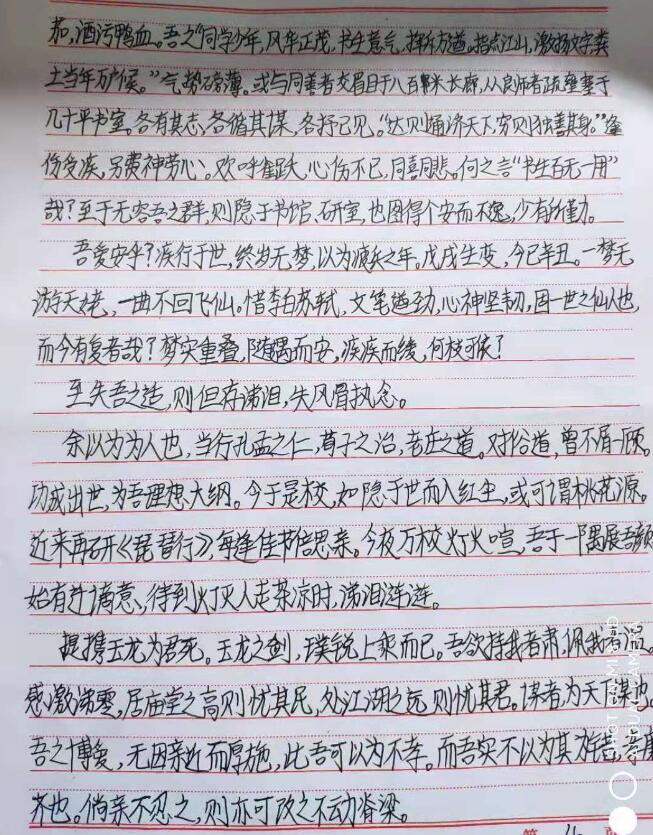 茄,酒污鸭血。吾之“同学少年,风华正茂,书生意气,挥斥方遒。指点江山,激扬文字,粪
土当年万户侯。”气势磅薄。或与同辈者交眉目于八百米长廊,从良师者疏壅塞于
几十平书室。各有其志,各循其谋,各抒己见。“达则通济天下,穷则独善其身。”逢
伤受疾,另费神劳心。欢呼雀跃,心伤不已,同喜同悲。何之言“书生百无一用”
哉?至于无容吾之群,则隐于书馆、研室,也图得个安而不逸,少有所僅力。
吾爱安乎?疾行于世,终岁无梦,以为疲矣之年。戊戌生变,今已辛丑。一梦无
游天姥,一曲不回飞仙。惜李白苏轼,文笔遒劲,心神坚韧,固一世之仙人也,
而今有复者哉?梦实重叠,随遇而安,疾疾而缓,何枝可依?
至失吾之造,则但存涕泪,失风骨执念。
余以为为人也,当行孔孟之仁,荀子之治,老庄之道。对俗道,曾不屑一顾。
功成出世,为吾理想大纲。今于是校,如隐于世而入红尘,或可谓桃花源。
近来再研《琵琶行》,每逢佳节倍思亲。今夜万校灯火喧,吾于一隅展吾颜
始有许满意、待到灯灭人走茶凉时,涕泪涟涟。
提携玉龙为君死。玉龙之剑,璞锐上乘而已。吾欲持我者肃,佩我者
感激涕零,居庙堂之高则忧其民,处江湖之远则忧其君。谋者为天下谋也。
吾之博爱,无因亲近而厚施,此吾可以为不孝。而吾实不以为其
齐也。倘亲不忍之,则亦可改之不动脊梁。
SHOT ON MI 8 UD
AI DUAL CAMERA
第 4 页